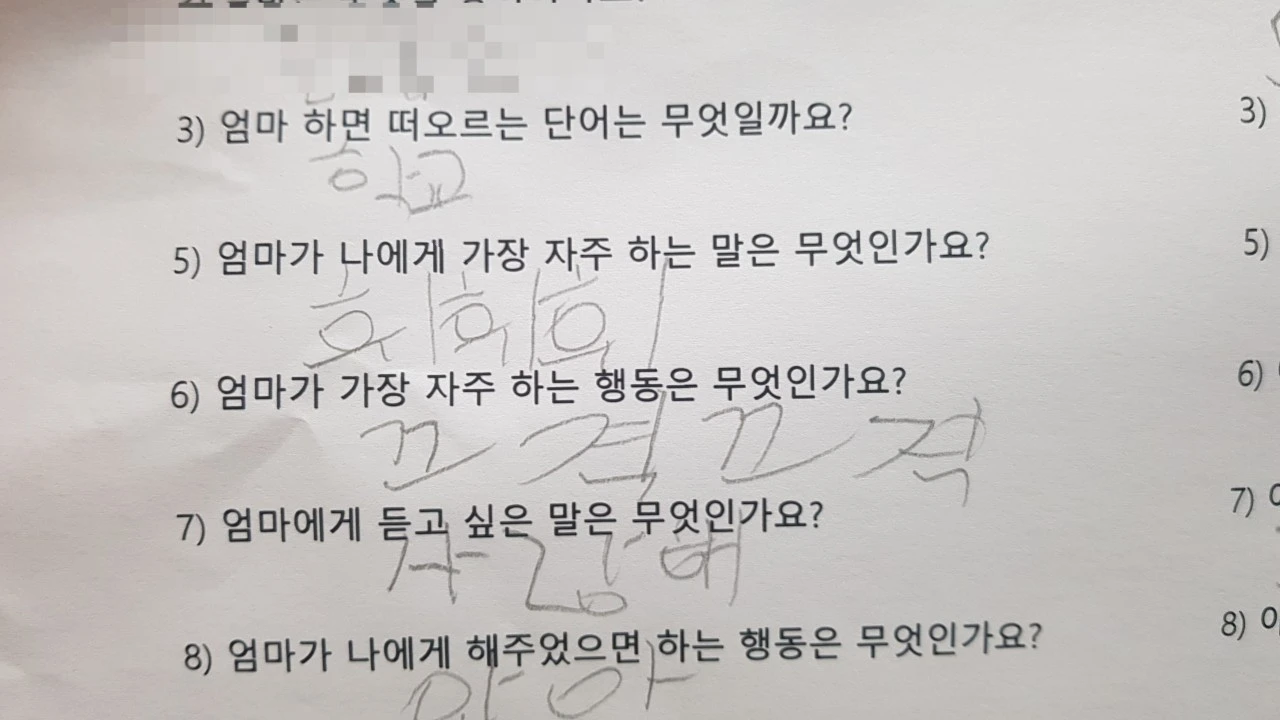 3) 엄마 하면 떠오르는 단어는 무엇일까요?
학교
5) 엄마가 나에게 가장 자주 하는 말은 무엇인가요?
휘휘휘
6) 엄마가 가장 자주 하는 행동은 무엇인가요?
끄적끄적
7) 엄마에게 듣고 싶은 말은 무엇인가요?
사랑해
8) 엄마가 나에게 해주었으면 하는 행동은 무엇인가요?
3)
5)
6)
7)
8)